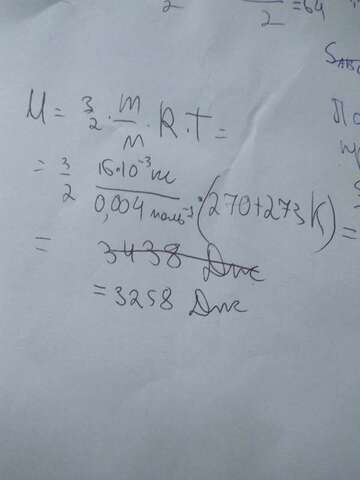 2 2 =64
S
U = 3/2 · m/M · R · T =
= 3/2 16·10⁻³ m / 0,004 моль⁻¹ · (270+273K) =
= 3438 Дж
= 3258 Дж